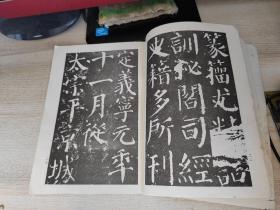 篆籀尤
訓秘閣司經
史籍多所刊
定義寧元年
十一月從
太宗平京城